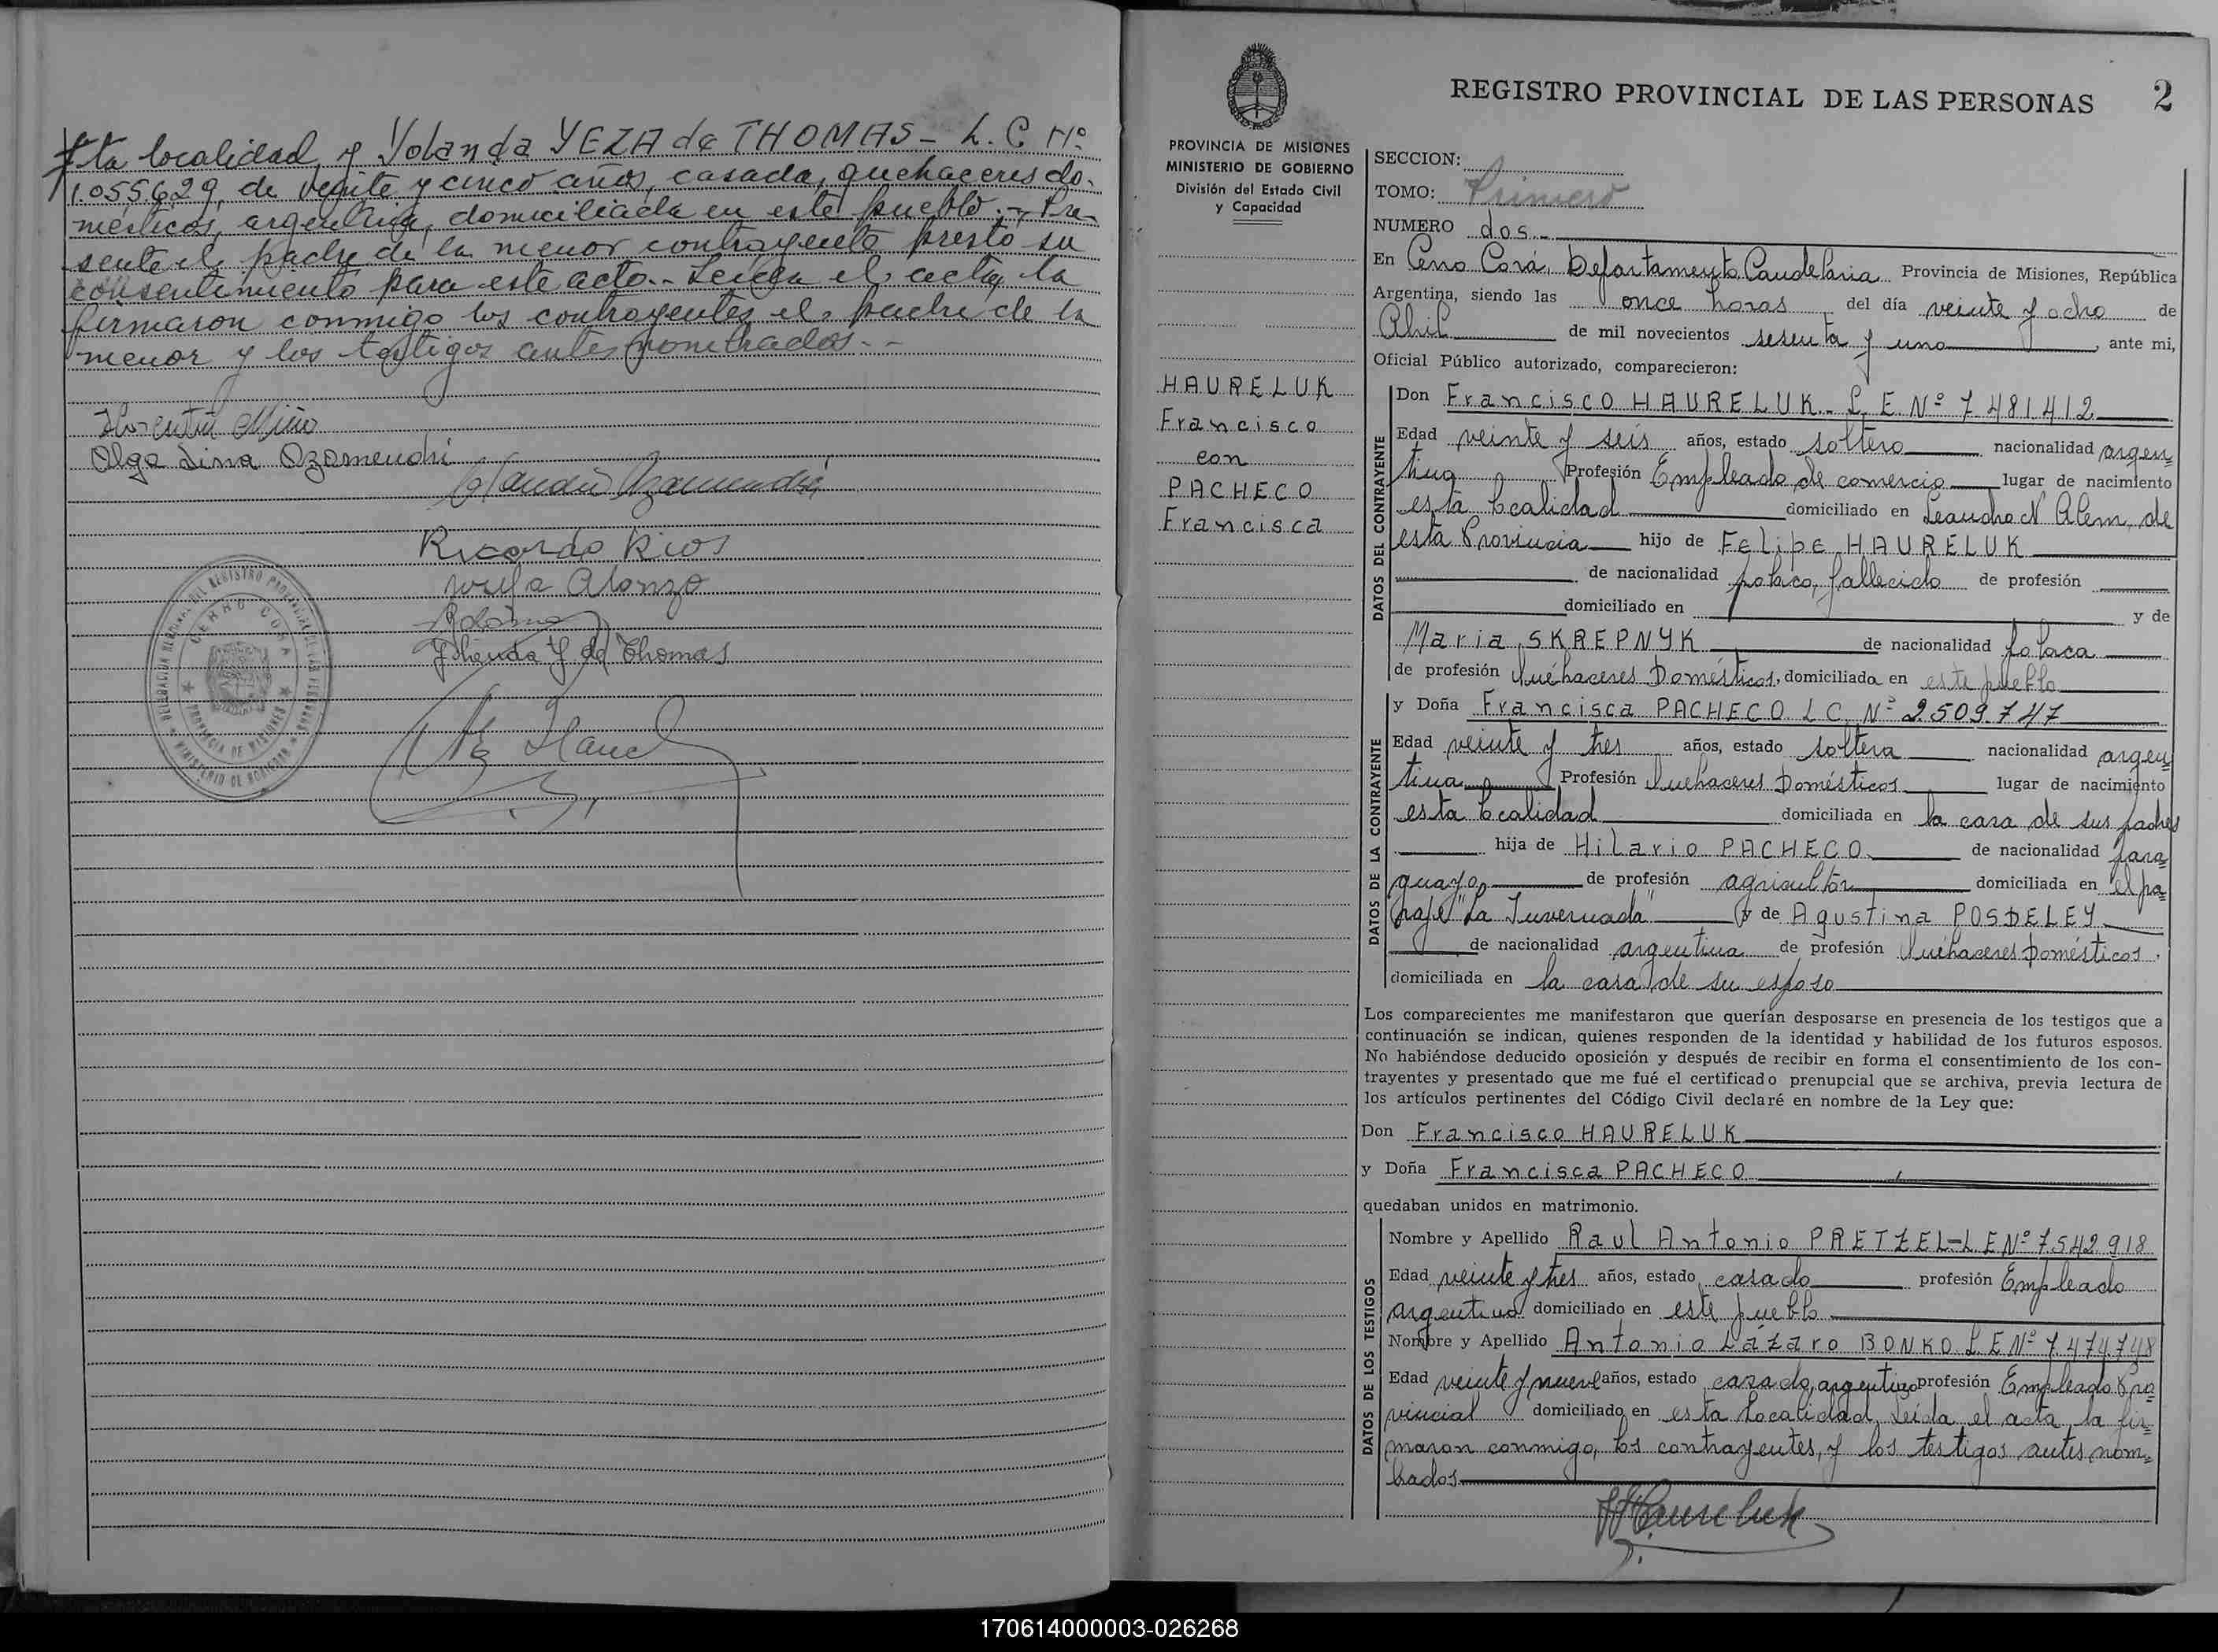 sta localidad y Yolanda YEZA de THOMAS - L. C. Nº
1.055.629, de veinte y cinco años, casada, quehaceres do-
mésticos, argentina, domiciliada en este pueblo.- Pre-
sente el padre de la menor contrayente prestó su
consentimiento para este acto.- Leída el acta la
firmaron conmigo los contrayentes el padre de la
menor y los testigos antes nombrados.-
Florentin Miño
Olga Lina Ozamendri
Ricardo Rios
Alonzo
Yolanda Y de Thomas
CERRO CORA
PROVINCIA DE MISIONES
MINISTERIO DE GOBIERNO
REGISTRO PROVINCIAL DE LAS PERSONAS 2
PROVINCIA DE MISIONES
MINISTERIO DE GOBIERNO
División del Estado Civil
y Capacidad
HAURELUK
Francisco
con
PACHECO
Francisca
SECCION:
TOMO: Primero
NUMERO dos.-
En Cerro Corá, Departamento Candelaria Provincia de Misiones, República
Argentina, siendo las once horas del día veinte y ocho de
Abril de mil novecientos sesenta y uno, ante mi,
Oficial Público autorizado, comparecieron:
DATOS DEL CONTRAYENTE
Don Francisco HAURELUK.- L. E. Nº 7.481.412
Edad veinte y seis años, estado soltero nacionalidad argen=
tina Profesión Empleado de comercio lugar de nacimiento
esta localidad domiciliado en Leandro N Alem, de
esta Provincia hijo de Felipe HAURELUK
de nacionalidad polaco, fallecido de profesión
domiciliado en y de
Maria SKREPNYK de nacionalidad polaca
de profesión Quéhaceres Domésticos, domiciliada en este pueblo
DATOS DE LA CONTRAYENTE
y Doña Francisca PACHECO L C Nº 2.509.747
Edad veinte y tres años, estado soltera nacionalidad argen=
tina Profesión Quehaceres Domésticos lugar de nacimiento
esta localidad domiciliada en la casa de sus padres
hija de Hilario PACHECO de nacionalidad para=
guayo de profesión agricultor domiciliada en el pa=
raje "La Invernada" y de Agustina POSDELEY
de nacionalidad argentina de profesión Quéhaceres Domésticos,
domiciliada en la casa de su esposo
Los comparecientes me manifestaron que querían desposarse en presencia de los testigos que a
continuación se indican, quienes responden de la identidad y habilidad de los futuros esposos.
No habiéndose deducido oposición y después de recibir en forma el consentimiento de los con-
trayentes y presentado que me fué el certificado prenupcial que se archiva, previa lectura de
los artículos pertinentes del Código Civil declaré en nombre de la Ley que:
Don Francisco HAURELUK
y Doña Francisca PACHECO
quedaban unidos en matrimonio.
DATOS DE LOS TESTIGOS
Nombre y Apellido Raul Antonio PRETZEL-L E Nº 7.542.918
Edad veinte y tres años, estado casado profesión Empleado
argentino domiciliado en este pueblo
Nombre y Apellido Antonio Lázaro BONKO L E Nº 7.474.748
Edad veinte y nueve años, estado casado, argentino profesión Empleado Pro=
vincial domiciliado en esta Localidad, Leída el acta, la fir=
maron conmigo, los contrayentes, y los testigos antes nom=
brados
Haureluk
170614000003-026268